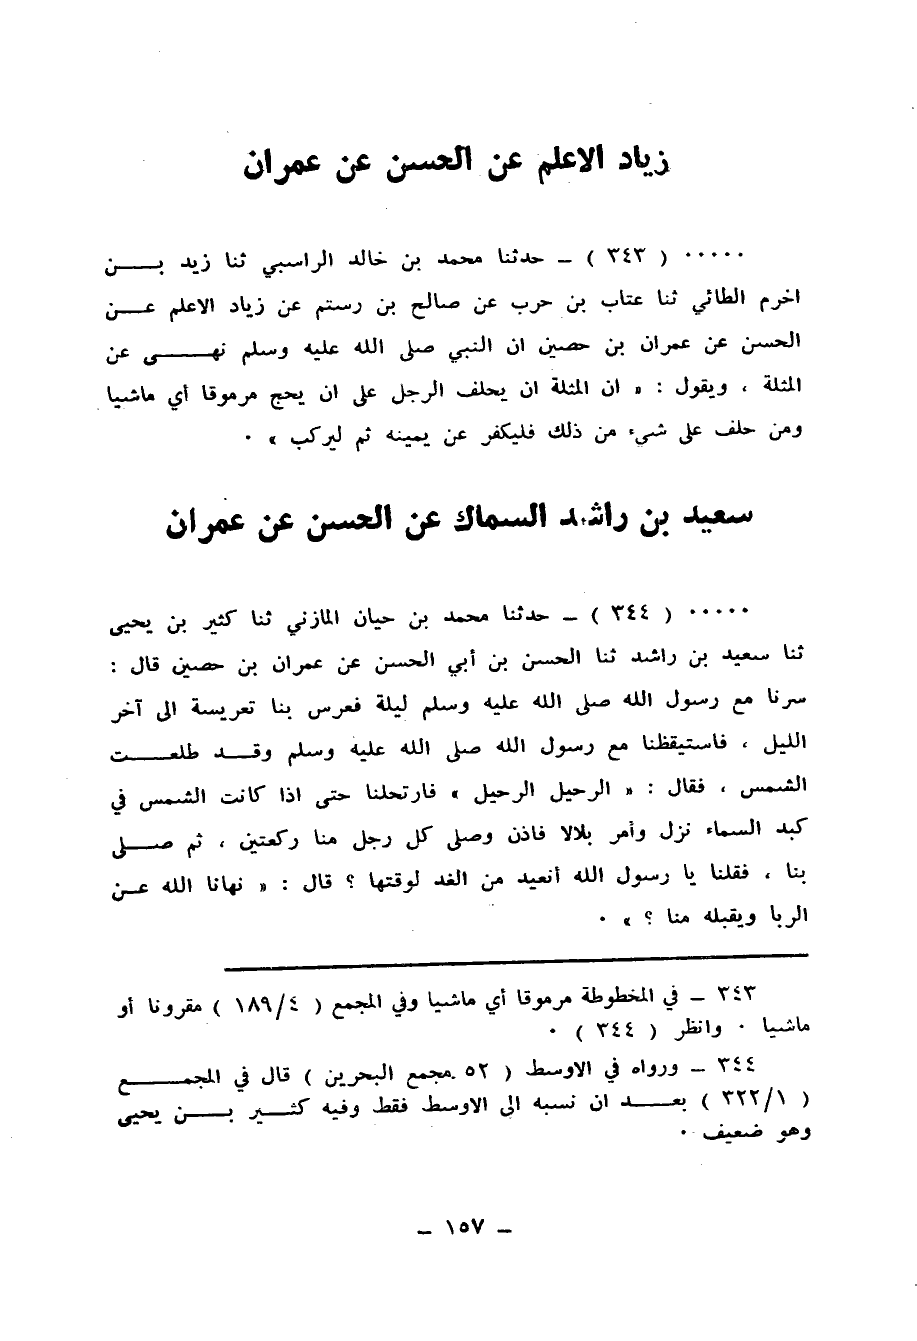 زياد الاعلم عن الحسن عن عمران
٠٠٠٠٠ ( ٣٤٣ ) ـ حدثنا محمد بن خالد الراسبي ثنا زيد بـــن
اخرم الطائي ثنا عتاب بن حرب عن صالح بن رستم عن زياد الاعلم عـــن
الحسن عن عمران بن حصين ان النبي صلى الله عليه وسلم نهـــى عن
المثلة ، ويقول : « ان المثلة ان يحلف الرجل على ان يحج مرموقا أي ماشيا
ومن حلف على شيء من ذلك فليكفر عن يمينه ثم ليركب » ٠
سعيد بن راشد السماك عن الحسن عن عمران
٠٠٠٠٠ ( ٣٤٤ ) ـ حدثنا محمد بن حيان المازني ثنا كثير بن يحيى
ثنا سعيد بن راشد ثنا الحسن بن أبي الحسن عن عمران بن حصين قال :
سرنا مع رسول الله صلى الله عليه وسلم ليلة فعرس بنا تعريسة الى آخر
الليل ، فاستيقظنا مع رسول الله صلى الله عليه وسلم وقـــد طلعـــت
الشمس ، فقال : « الرحيل الرحيل » فارتحلنا حتى اذا كانت الشمس في
كبد السماء نزل وأمر بلالا فاذن وصلى كل رجل منا ركعتين ، ثم صـــلى
بنا ، فقلنا يا رسول الله أنعيد من الغد لوقتها ؟ قال : « نهانا الله عـــن
الربا ويقبله منا ؟ » ٠
٣٤٣ ـ في المخطوطة مرموقا أي ماشيا وفي المجمع ( ١٨٩/٤ ) مقرونا أو
ماشيا ٠ وانظر ( ٣٤٤ ) ٠
٣٤٤ ـ ورواه في الاوسط ( ٥٢ مجمع البحرين ) قال في المجمـــع
( ٣٢٢/١ ) بعـــد ان نسبه الى الاوسط فقط وفيه كثـــير بـــن يحيى
وهو ضعيف ٠
ـ ١٥٧ ـ